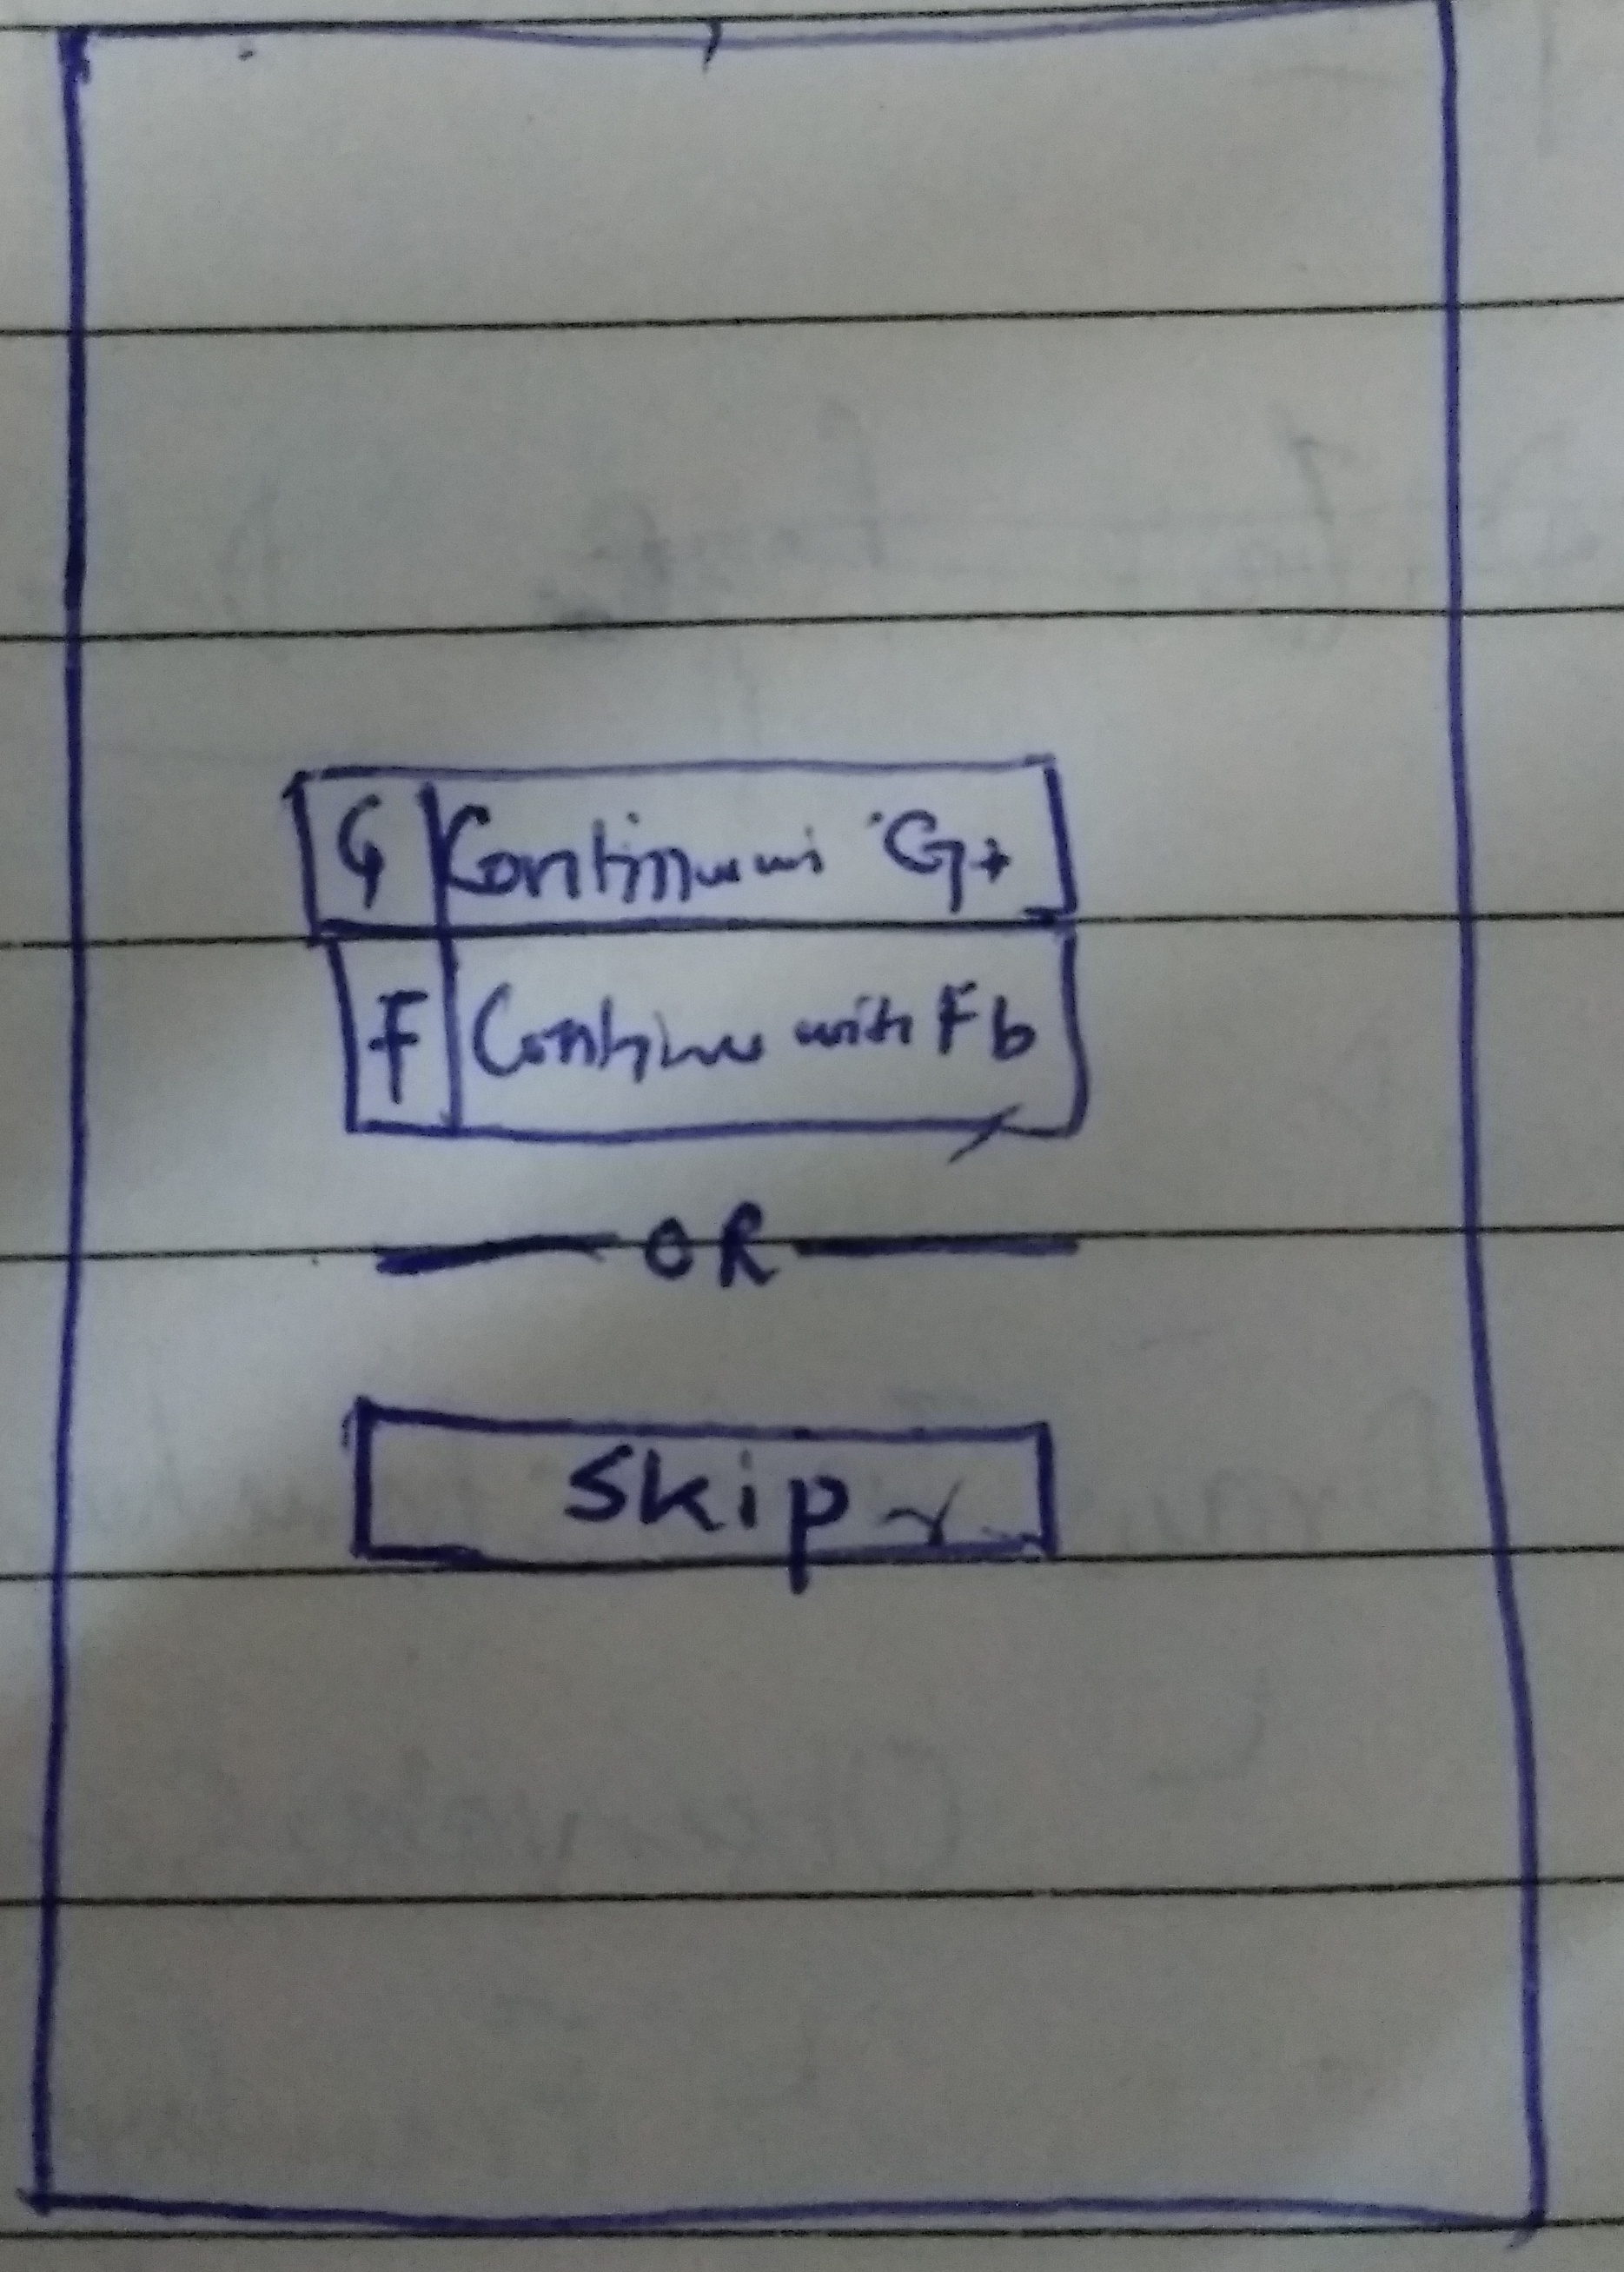 G Continue wi G+
F Continue with Fb
OR
Skip